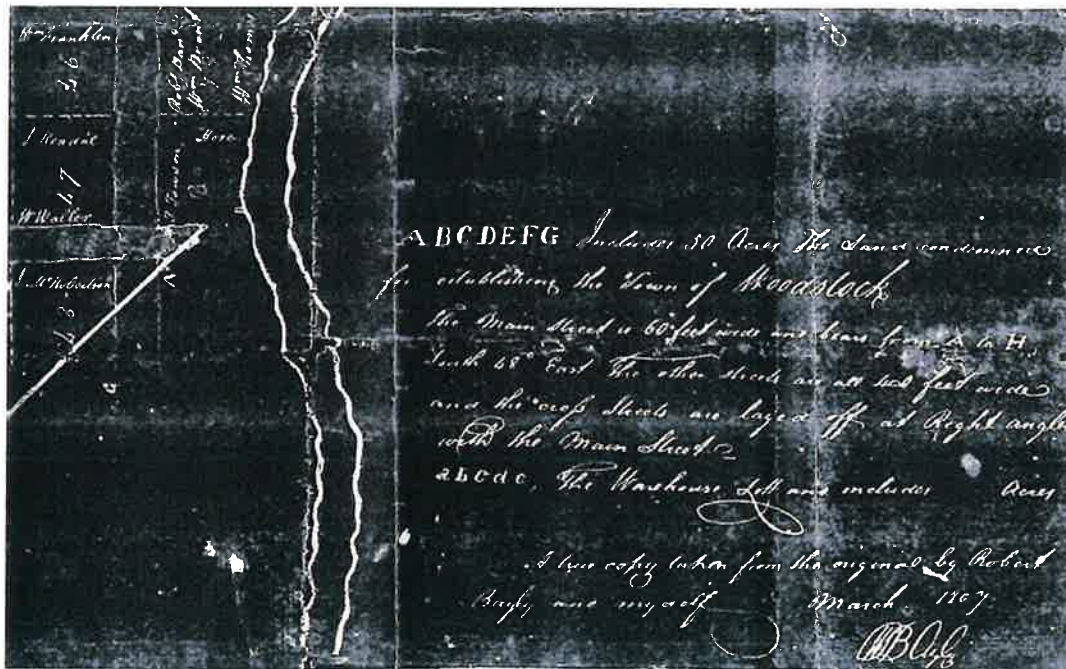 Wm Franklin
46
J Kendal
47
W Waller
48
Robt
Wm
Wm Thom
A
a
ABCDEFG Includes 50 Acres The Land condemned
for establishing the Town of Woodstock
The Main Street is 60 feet wide and bears from A to H,
South 48° East The other Streets are all feet wide
and the cross Streets are layed off at Right angles
with the Main Street
abcde, The Warehouse Lott and includes Acres
A true copy taken from the original by Robert
Bayly and myself March 1807